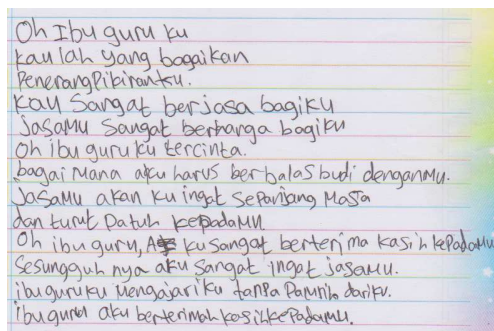 Oh Ibu guru ku
kau lah yang bagaikan
Penerang Pikiranku.
kau Sangat berjasa bagiku
jasamu Sangat berharga bagiku
Oh ibu guru ku tercinta.
bagai mana aku harus berbalas budi denganmu.
Jasamu akan ku ingat Sepanjang Masa
dan turut Patuh kepadamu.
Oh ibu guru, ku sangat berterima kasih kepadamu
Sesungguh nya aku Sangat ingat jasamu.
ibu guruku Mengajari ku tanpa Pamrih dariku.
ibu guru aku berterimah kasih kepadamu.